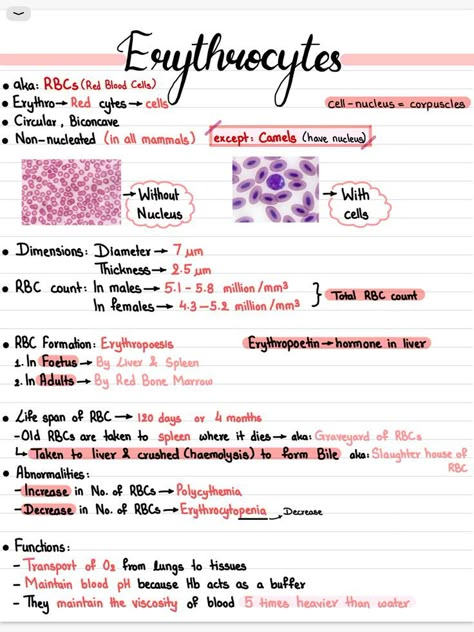 Erythrocytes
• aka: RBCs (Red Blood Cells)
• Erythro → Red cytes → cells
cell - nucleus = corpuscles
• Circular, Biconcave
• Non-nucleated (in all mammals)
except: Camels (have nucleus)
→ Without Nucleus
→ With cells
• Dimensions: Diameter → 7 μm
Thickness → 2.5 μm
• RBC count: In males → 5.1 - 5.8 million/mm³
In females → 4.3 - 5.2 million/mm³
} Total RBC count
• RBC Formation: Erythropoesis
Erythropoetin → hormone in liver
1. In Foetus → By Liver & Spleen
2. In Adults → By Red Bone Marrow
• Life span of RBC → 120 days or 4 months
- Old RBCs are taken to spleen where it dies → aka: Graveyard of RBCs
↳ Taken to liver & crushed (haemolysis) to form Bile aka: Slaughter house of RBC
• Abnormalities:
- Increase in No. of RBCs → Polycythemia
- Decrease in No. of RBCs → Erythrocytopenia → Decrease
• Functions:
- Transport of O₂ from lungs to tissues
- Maintain blood pH because Hb acts as a buffer
- They maintain the viscosity of blood 5 times heavier than water